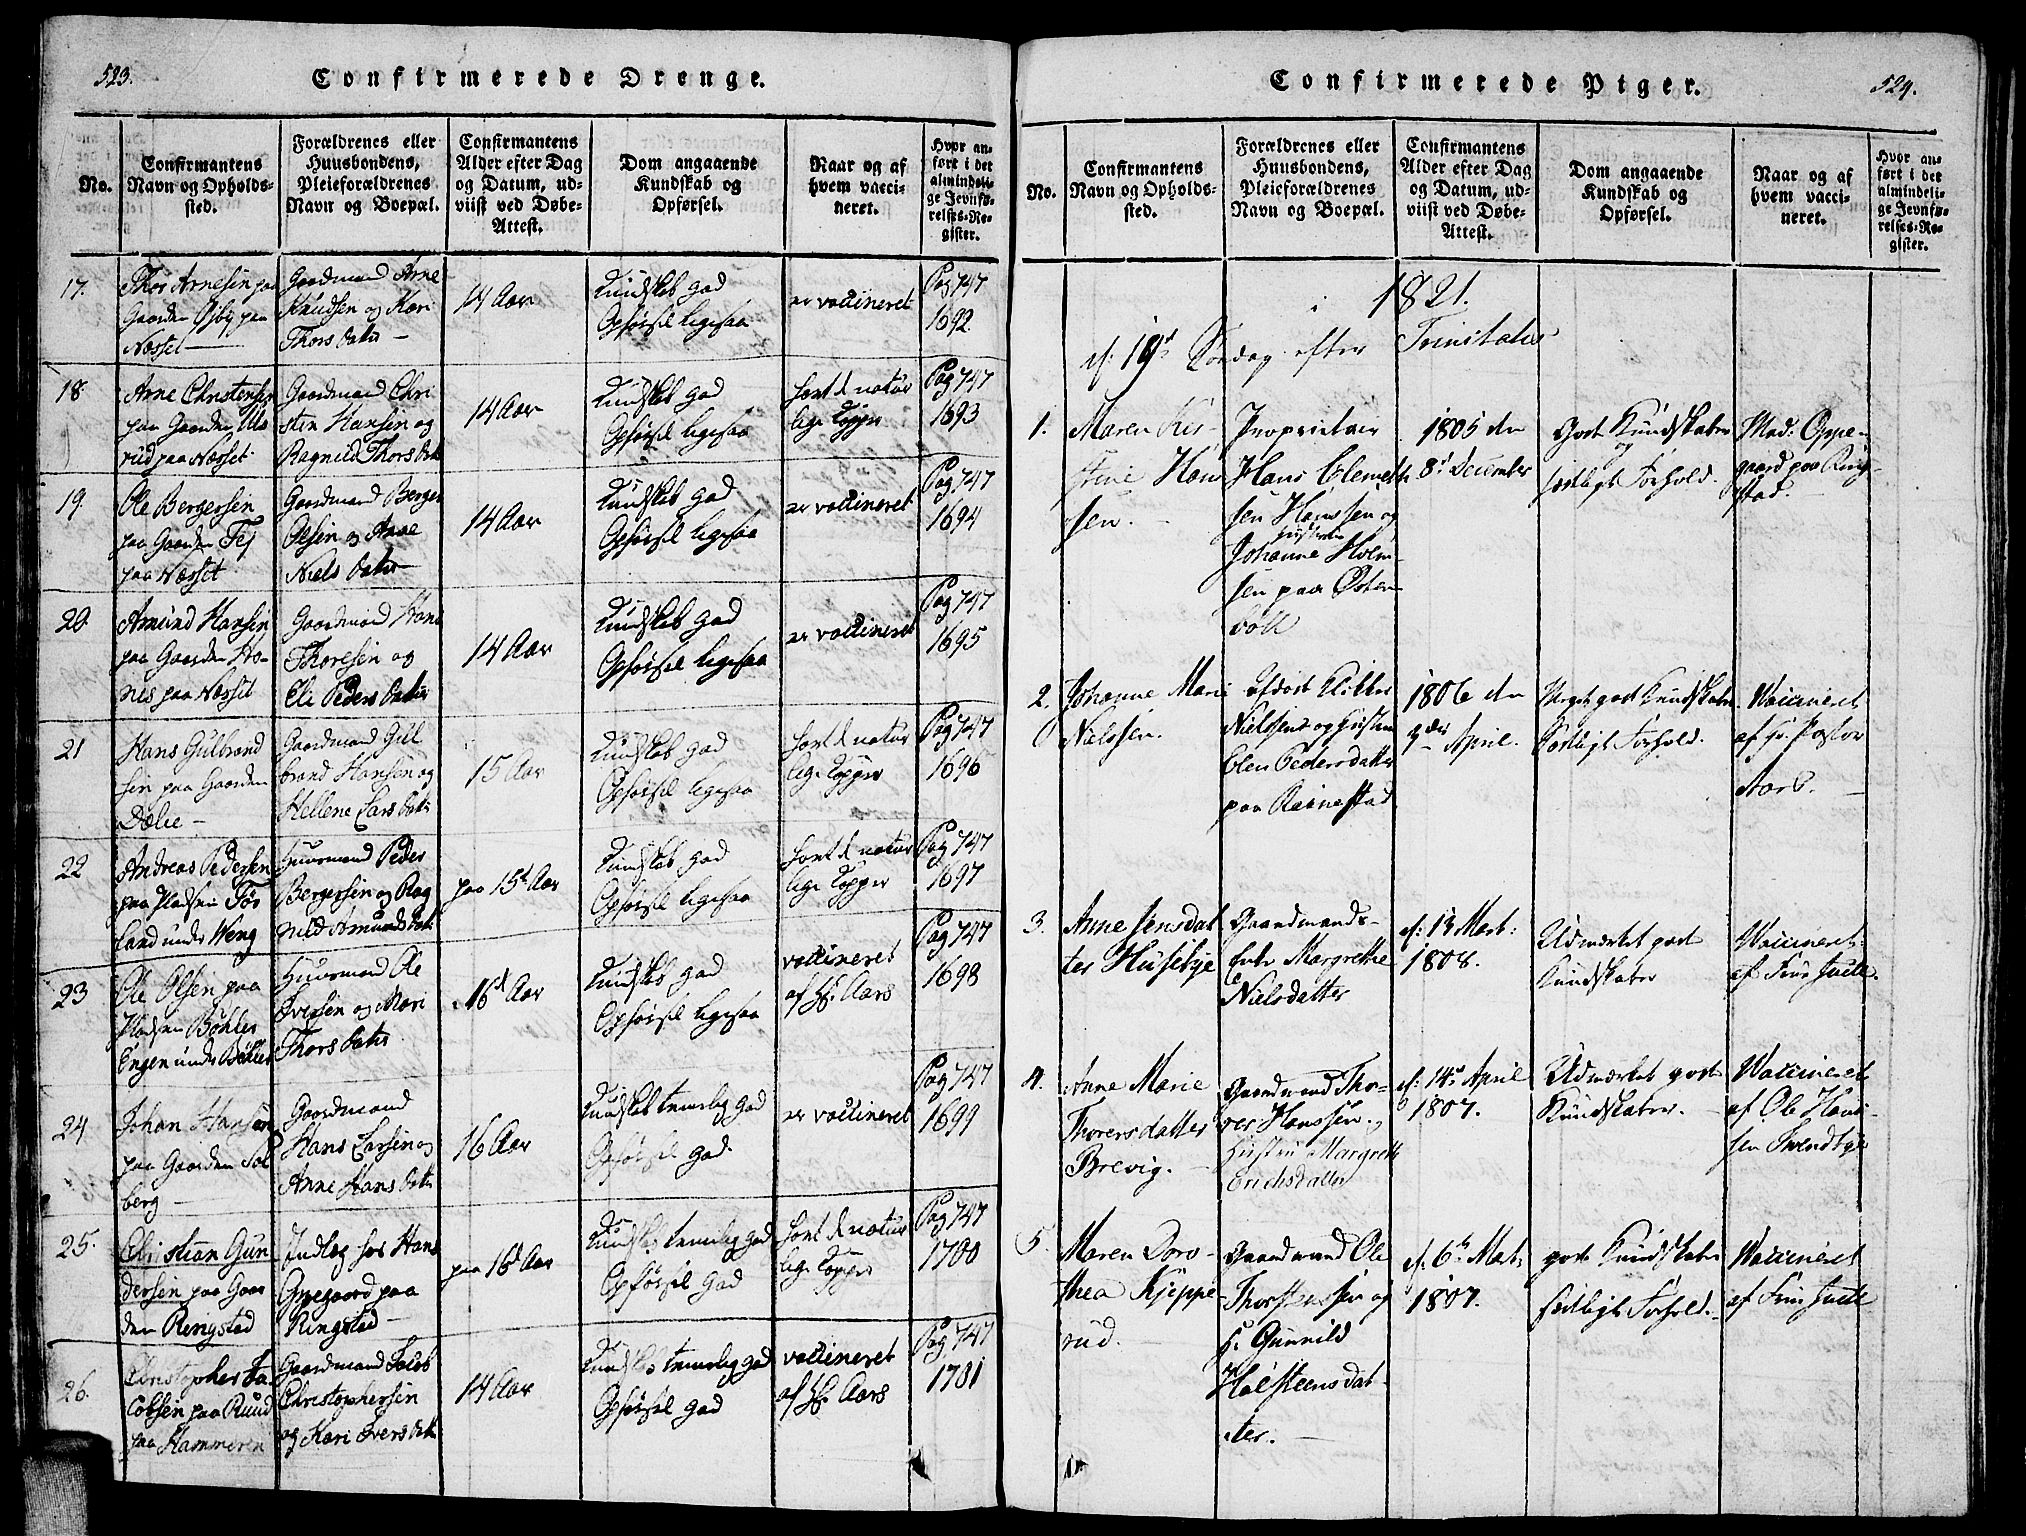 523.
Confirmerede Drenge.
No.
Confirmantens
Navn og Opholds-
sted.
Forældrenes eller
Huusbondens,
Pleieforældrenes
Navn og Boepæl.
Confirmantens
Alder efter Dag
og Datum, ud-
viist ved Døbe-
Attest.
Dom angaaende
Kundskab og
Opførsel.
Naar og af
hvem vacci-
neret.
Hvor an-
ført i det
almindeli-
ge Jevnfø-
relses-Re-
gister.
17.
Thor Arnesen paa
Gaarden Øjby paa
Næsset
Gaardmand Arne
Knudsen og Kari
Thors datter
14 Aar
Kundskab god
Opførsel ligesaa
er vaccineret
Pag 747
1692
18.
Arne Christensen
paa Gaarden Uls
rud paa Næsset
Gaardmand Chri
sten Hansen og
Ragnild Thors dat
14 Aar
Kundskab god
Opførsel ligesaa
havt de natur
lige Kopper
Pag 747
1693
19.
Ole Bergersen
paa Gaarden Fej
paa Næsset
Gaardmand Berger
Olsen og Anne
Niels datter
14 Aar
Kundskab god
Opførsel ligesaa
er vaccineret
Pag 747
1694
20
Amund Hansen
paa Gaarden Ho-
nes paa Næsset
Gaardmand Hans
Thoresen og
Eli Peders datter
14 Aar
Kundskab god
Opførsel ligesaa
er vaccineret
Pag 747
1695
21
Hans Gulbrand
sen paa Gaarden
Dælie
Gaardmand Gul
brand Hansen og
Hellene Lars datr
15 Aar
Kundskab god
Opførsel ligesaa
havt de natur
lige Kopper
Pag 747
1696
22
Andreas Pedersen
paa Pladsen Tor
land under Weng
Huusmand Peder
Bergersen og Rag
nild Amunds datr
paa 15d Aar
Kundskab god
Opførsel ligesaa
havt de natur
lige Kopper
Pag 747
1697
23
Ole Olsen paa
Pladsen Böhler
Engen under Böhler
Huusmand Ole
Iversen og Mari
Thors datter
16d Aar
Kundskab god
Opførsel ligesaa
vaccineret
af Hr. Aars
Pag 747
1698
24
Johan Hansen
paa Gaarden Sol
berg
Gaardmand
Hans Larsen og
Anne Hans datr
16 Aar
Kundskab temmelig god
Opførsel god.
er vaccineret
Pag 747
1699
25.
Christian Gun
dersen paa Gaar
den Ringstad
Indlag hos Hans
Oppegaard paa
Ringstad
paa 16d Aar
Kundskab temmelig god
Opførsel god
havt de natur
lige Kopper
Pag 747
1700
26.
Christopher Ja
cobsen paa Ruud
paa Hammeren
Gaardmand Jacob
Christophersen
og Kari Ivers datr
14 Aar
Kundskab temmelig god
Opførsel god
vaccineret
af Hr. Aars
Pag 747
1701
524.
Confirmerede Piger.
No.
Confirmantens
Navn og Opholds-
sted.
Forældrenes eller
Huusbondens,
Pleieforældrenes
Navn og Boepæl.
Confirmantens
Alder efter Dag
og Datum, ud-
viist ved Døbe-
Attest.
Dom angaaende
Kundskab og
Opførsel.
Naar og af
hvem vacci-
neret.
Hvor an-
ført i det
almindeli-
ge Jevnfø-
relses-Re-
gister.
1821.
d: 19d Søndag efter Trinitatis
1.
Maren Kir-
stine Han
sen.
Proprietair
Hans Clement
sen Hanssen og
hustru
Johanne Holm
sen paa Østen
voll
1805 den
8d December
godt Kundskaber
og
sædeligt Forhold.
Mad: Oppe-
gaard paa Ring-
stad.
2.
Johanne Marie
Nielssen.
afdøde Klokker
Nielssens og hustru
Elen Pedersdatter
paa Ramestad
1806 den
9de April.
Meget godt Kundskaber
sædeligt Forhold.
Vaccineret
af Hr. Pastor
Aars.
3.
Anne Jensdat
ter Husebye
Gaardmands-
Enke Margrethe
Nielsdatter
d: 13 Mart:
1808.
Udmærket godt
Kundskaber
Vaccineret
af Frue Juell.
4.
Anne Marie
Thorersdatter
Brevig.
Gaardmand Tho-
rer Hanssen og
hustru Margrethe
Erichsdatter
d: 14d April
1807.
Udmærket godt
Kundskaber.
Vaccineret
af Ole Han-
sen Tvendbye
5.
Maren Doro-
thea Kjeppe
rud.
Gaardmand Ole
Thorstenssen og
H. Gunnild
Holsteensdat-
ter.
d: 6te Mart:
1807.
godt Kundskaber
sædeligt Forhold.
Vaccineret
af Frue Juell